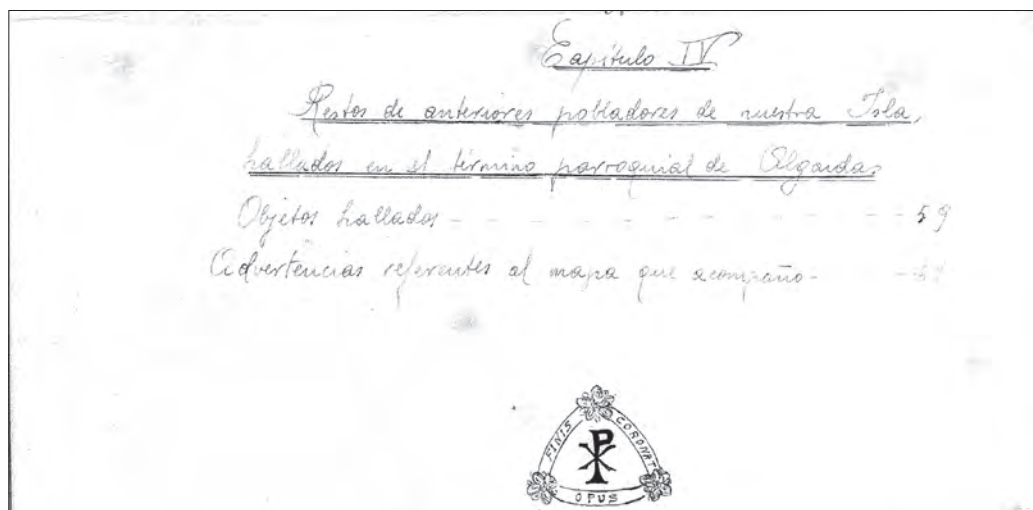 Capítulo IV
Restos de anteriores pobladores de nuestra Isla,
hallados en el término parroquial de Algaidas
Objetos hallados - - - - - - - - - - 59
Advertencias referentes al mapa que acompaño -
FINIS CORONAT OPUS